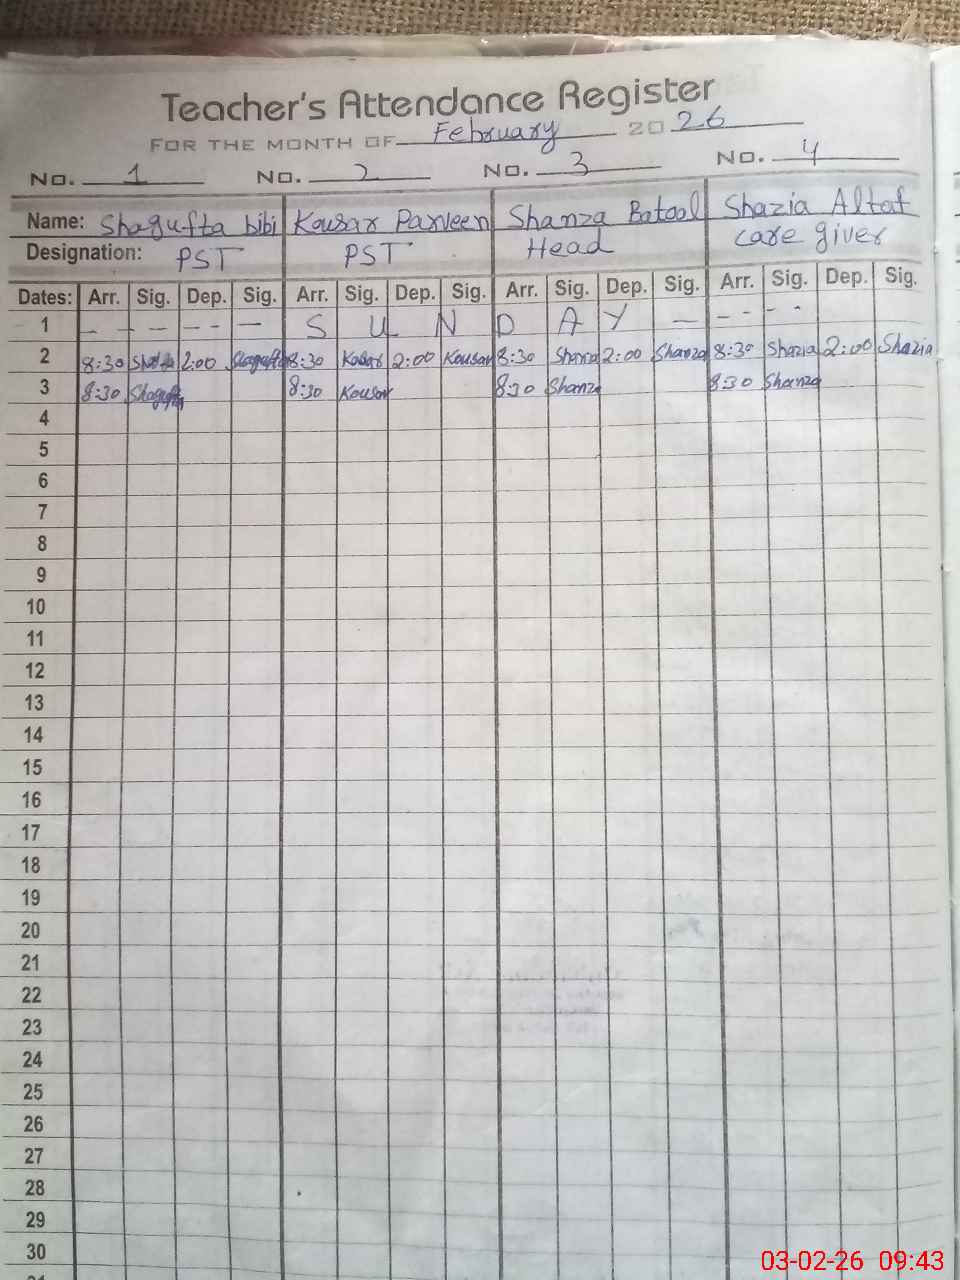 Teacher's Attendance Register
FOR THE MONTH OF February 2026
No. 1 No. 2 No. 3 No. 4
Name: Shagufta bibi Kousar Parveen Shanza Batool Shazia Altaf
Designation: PST PST Head care giver
Dates: Arr. Sig. Dep. Sig. Arr. Sig. Dep. Sig. Arr. Sig. Dep. Sig. Arr. Sig. Dep. Sig.
1 - - - - - - S U N D A Y - - - - -
2 8:30 2:00 Shagufta 8:30 Kousar 2:00 Kousar 8:30 Shanza 2:00 Shanza 8:30 Shazia 2:00 Shazia
3 8:30 Shagufta 8:30 Kousar 8:30 Shanza 8:30 Shanza
4
5
6
7
8
9
10
11
12
13
14
15
16
17
18
19
20
21
22
23
24
25
26
27
28
29
30
03-02-26 09:43